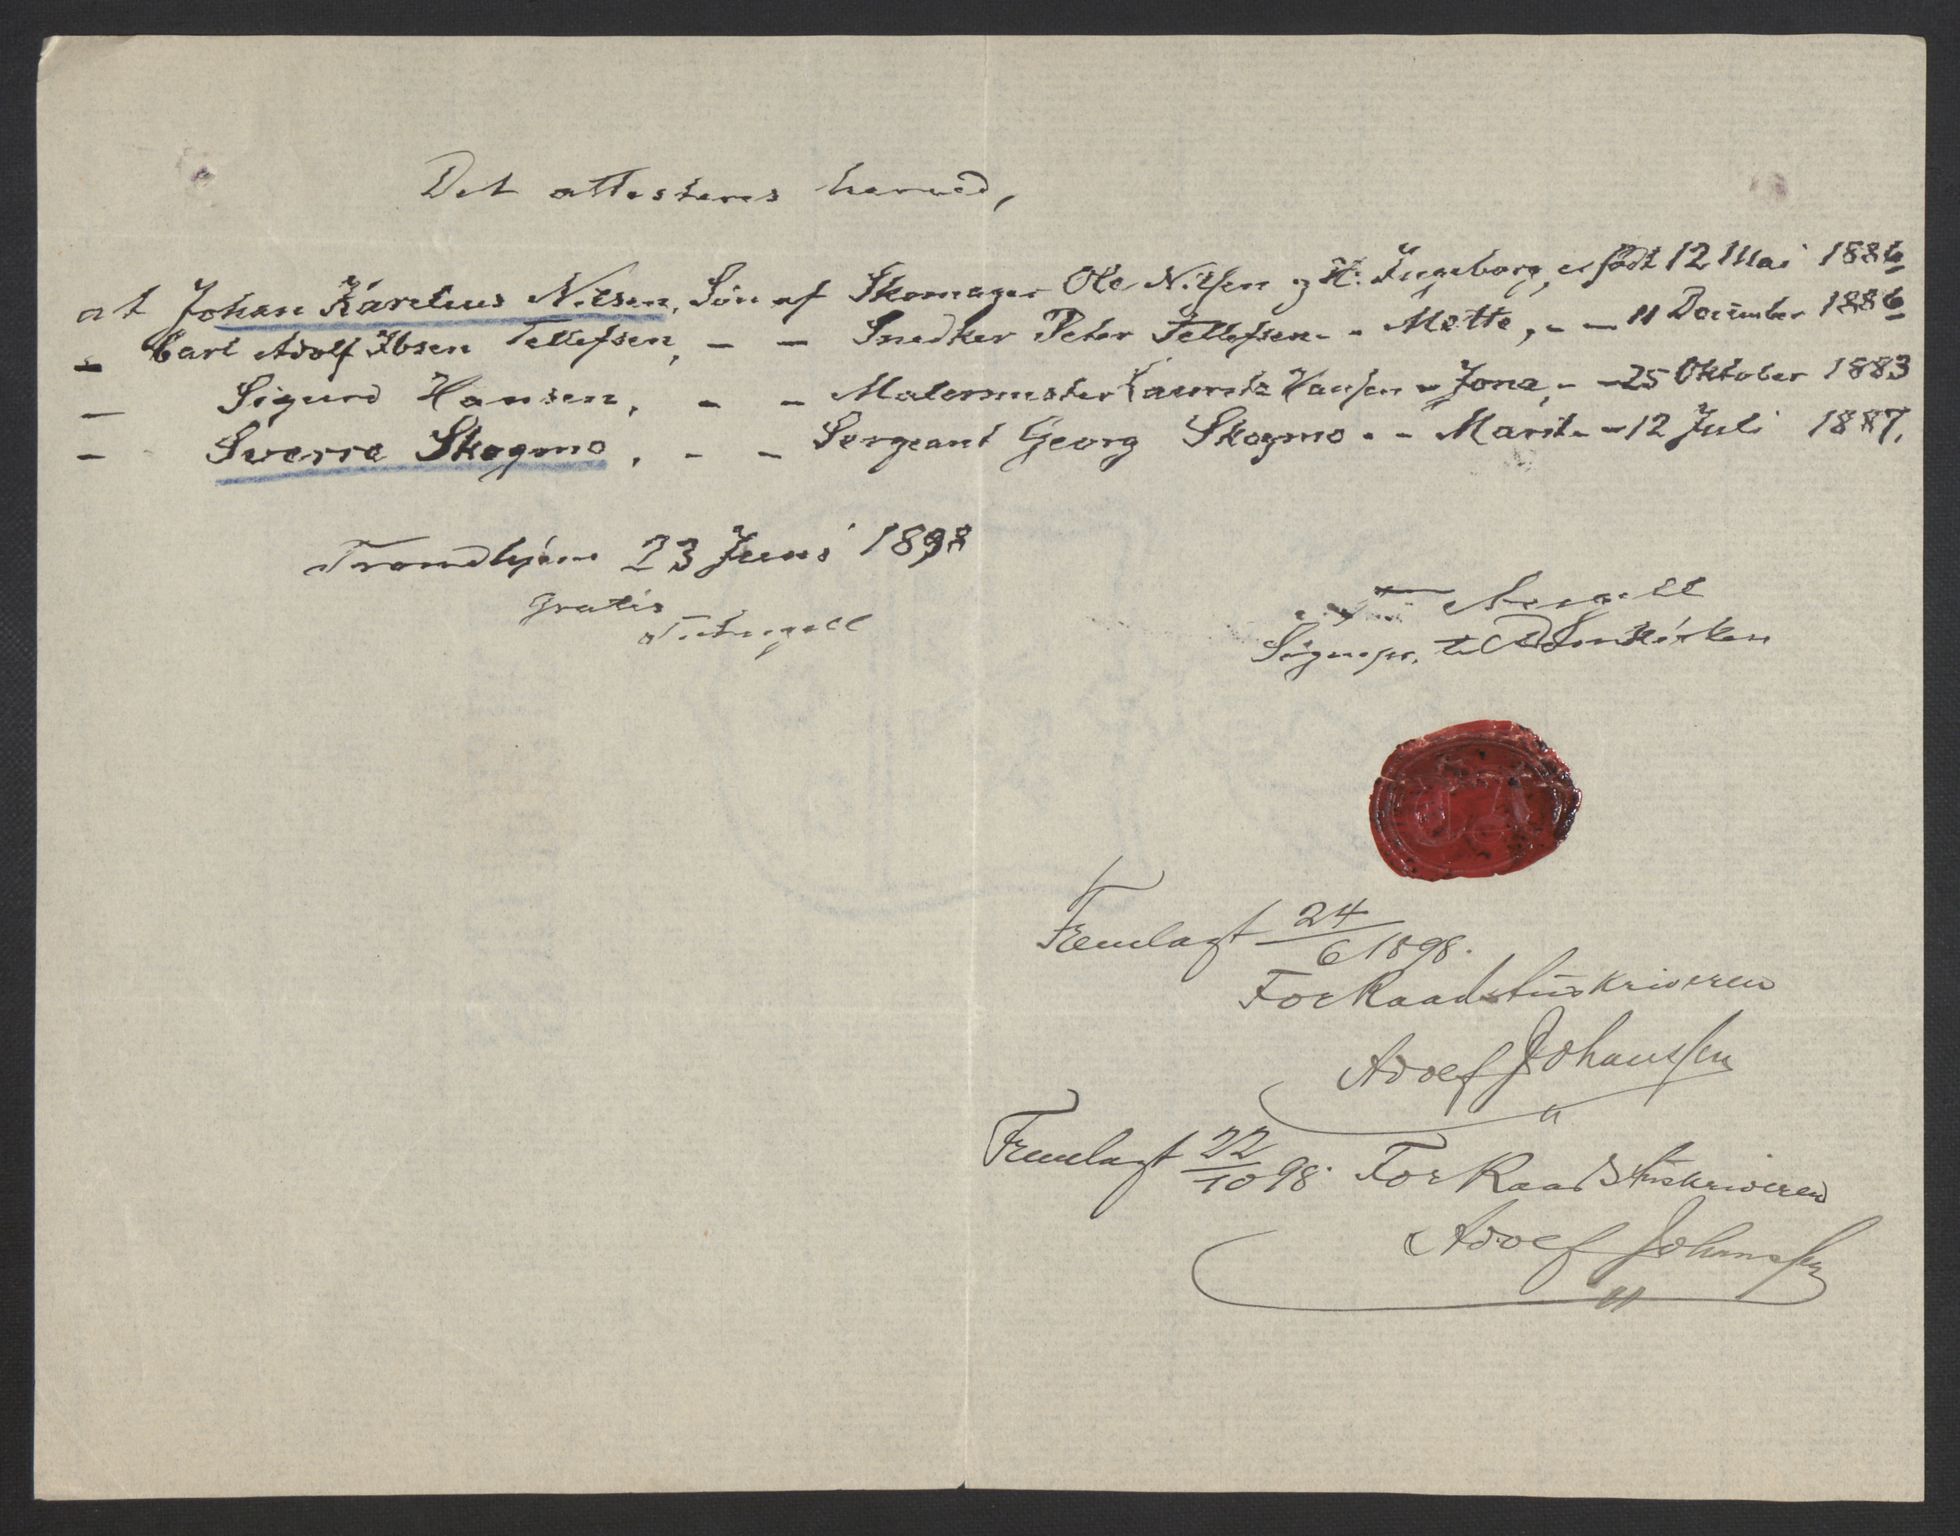 Det attesteres herved,
at Johan Kårelius Nilsen, Søn af Skomager Ole Nilsen og H. Ingeborg, er født 12 Mai 1886
- Carl Adolf Ibsen Tellefsen, - - Snedker Peter Tellefsen - - Mette, - - 11 December 1886
- Sigurd Hansen, - - Malermester Laurits Hansen - Jona, - - 25 Oktober 1883
- Sverre Skogmo, - - Sergeant Georg Skogmo - - Marit - - 12 Juli 1887.
Trondhjem 23 Juni 1898
Gratis
T. Angell
T Angell
Sognepr. til Domkirken
Fremlagt 24/6 1898.
For Raadstuskriveren
Adolf Johanssen
Fremlagt 22/10 98. For Raadstuskriveren
Adolf Johanssen